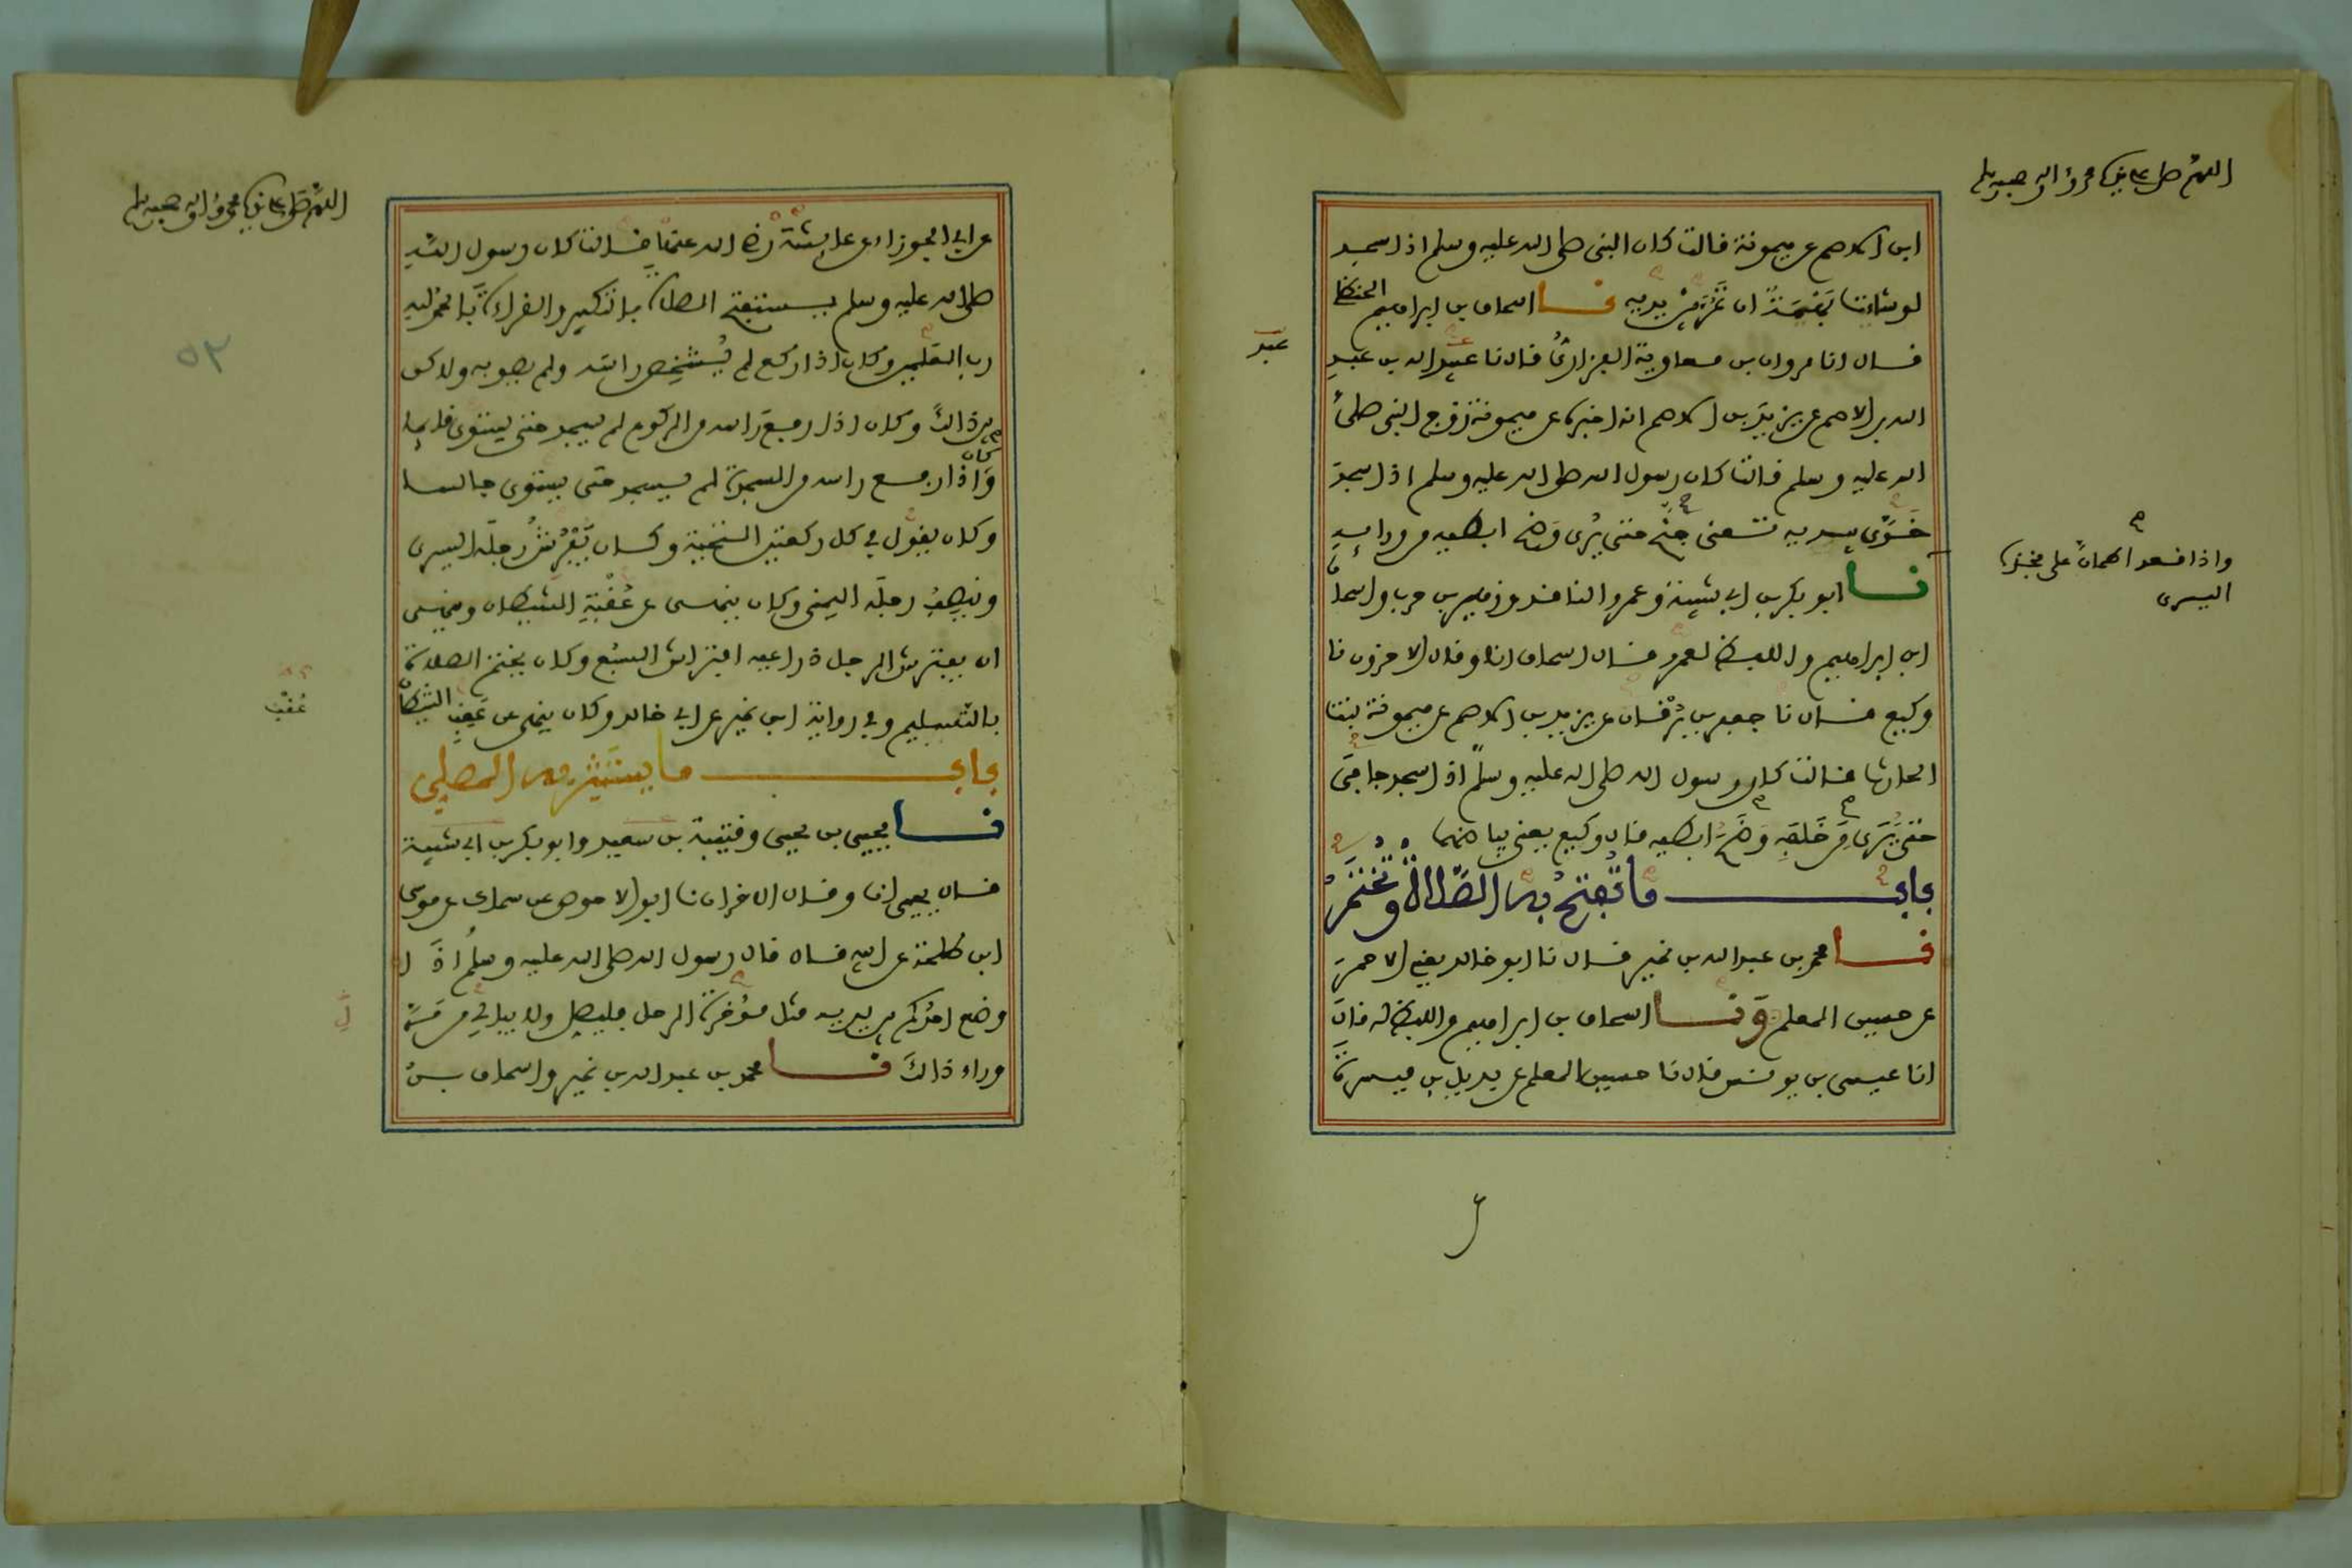 اللهم صل على سيدنا محمد وءاله وصحبه وسلم
ابن الاصم عن ميمونة قالت كان النبى صلى الله عليه وسلم اذا سجد
لو شاءت بَهْيمَةٌ ان تَمُرَّ بين يديه نا اسحاق بن ابراهيم الحنظلي
قال انا مروان بن معاوية الفزاريُّ قال نا عبيد الله بن عبد
عبد
الله بن الاصم عن يزيد بن الاصم انه اخبره عن ميمونة زوج النبى صلى
الله عليه وسلم قالت كان رسول الله صلى الله عليه وسلم اذا سجد
خَوَّى بيديه تعنى جنَّح حتى يُرى وَضَح ابطيه من ورايه
واذا قعد اطمأن على فخذه
اليسرى
نا ابو بكر بن ابي شيبة وعمرو الناقد وزهير بن حرب واسحاق
ابن ابراهيم واللفظ لعمرو قال اسحاق انا وقال الاخرون نا
وكيع قال نا جعفر بن بُرْقان عن يزيد بن الاصم عن ميمونة بنت
الحارث قالت كان رسول الله صلى الله عليه وسلم اذا سجد جافى
حتى يَرَى مَن خَلفَه وَضَحَ ابطيه قال وكيع يعنى بياضهما
باب ما تُفتتح به الصَّلاة وتُختتمُ
نا محمد بن عبد الله بن نمير قال نا ابو خالد يعني الاحمرَ
عن حسين المعلم وَنا اسحاق بن ابراهيم واللفظ له قال
انا عيسى بن يونس قال نا حسين المعلم عن بديل بن ميسرة
اللهم صل على سيدنا محمد وءاله وصحبه وسلم
عن ابي الجوزاء عن عايشة رضى الله عنها قالت كان رسول الله
صلى الله عليه وسلم يستفتح الصلاة بالتكبير والقراءة بالحمد لله
رب العلمين وكان اذا ركع لم يُشْخِص راسه ولم يصوبه ولاكن
٥٢
بين ذالك وكان اذا رفع راسه من الركوع لم يسجد حتى يستوي قايما
وَكان اذا رفع راسه من السجدة لم يسجد حتى يستوي جالسا
وكان يقول في كل ركعتين التحية وكان يَفْرُشُ رجلَه اليسرى
وينصِبُ رجلَه اليمنى وكان ينهى عن عُقْبَةِ الشيطان وينهى
ان يفترش الرجل ذراعيه افتراش السبُع وكان يختم الصلاة
بالتسليم وفي رواية ابن نمير عن ابي خالد وكان ينهى عن عَقِبِ الشيطان
عُقْبِ
باب ما يستَتِرُ به المصلي
نا يحيى بن يحيى وقتيبة بن سعيد وابو بكر بن ابي شيبة
قال يحيى انا وقال الاخران نا ابو الاحوص عن سماك عن موسى
ابن طلحة عن ابيه قال قال رسول الله صلى الله عليه وسلم اذا
وضع احدكم بين يديه مثل مؤخرة الرحل فليصل ولا يبالي من مَرَّ
وراء ذالك نا محمد بن عبد الله بن نمير واسحاق بن